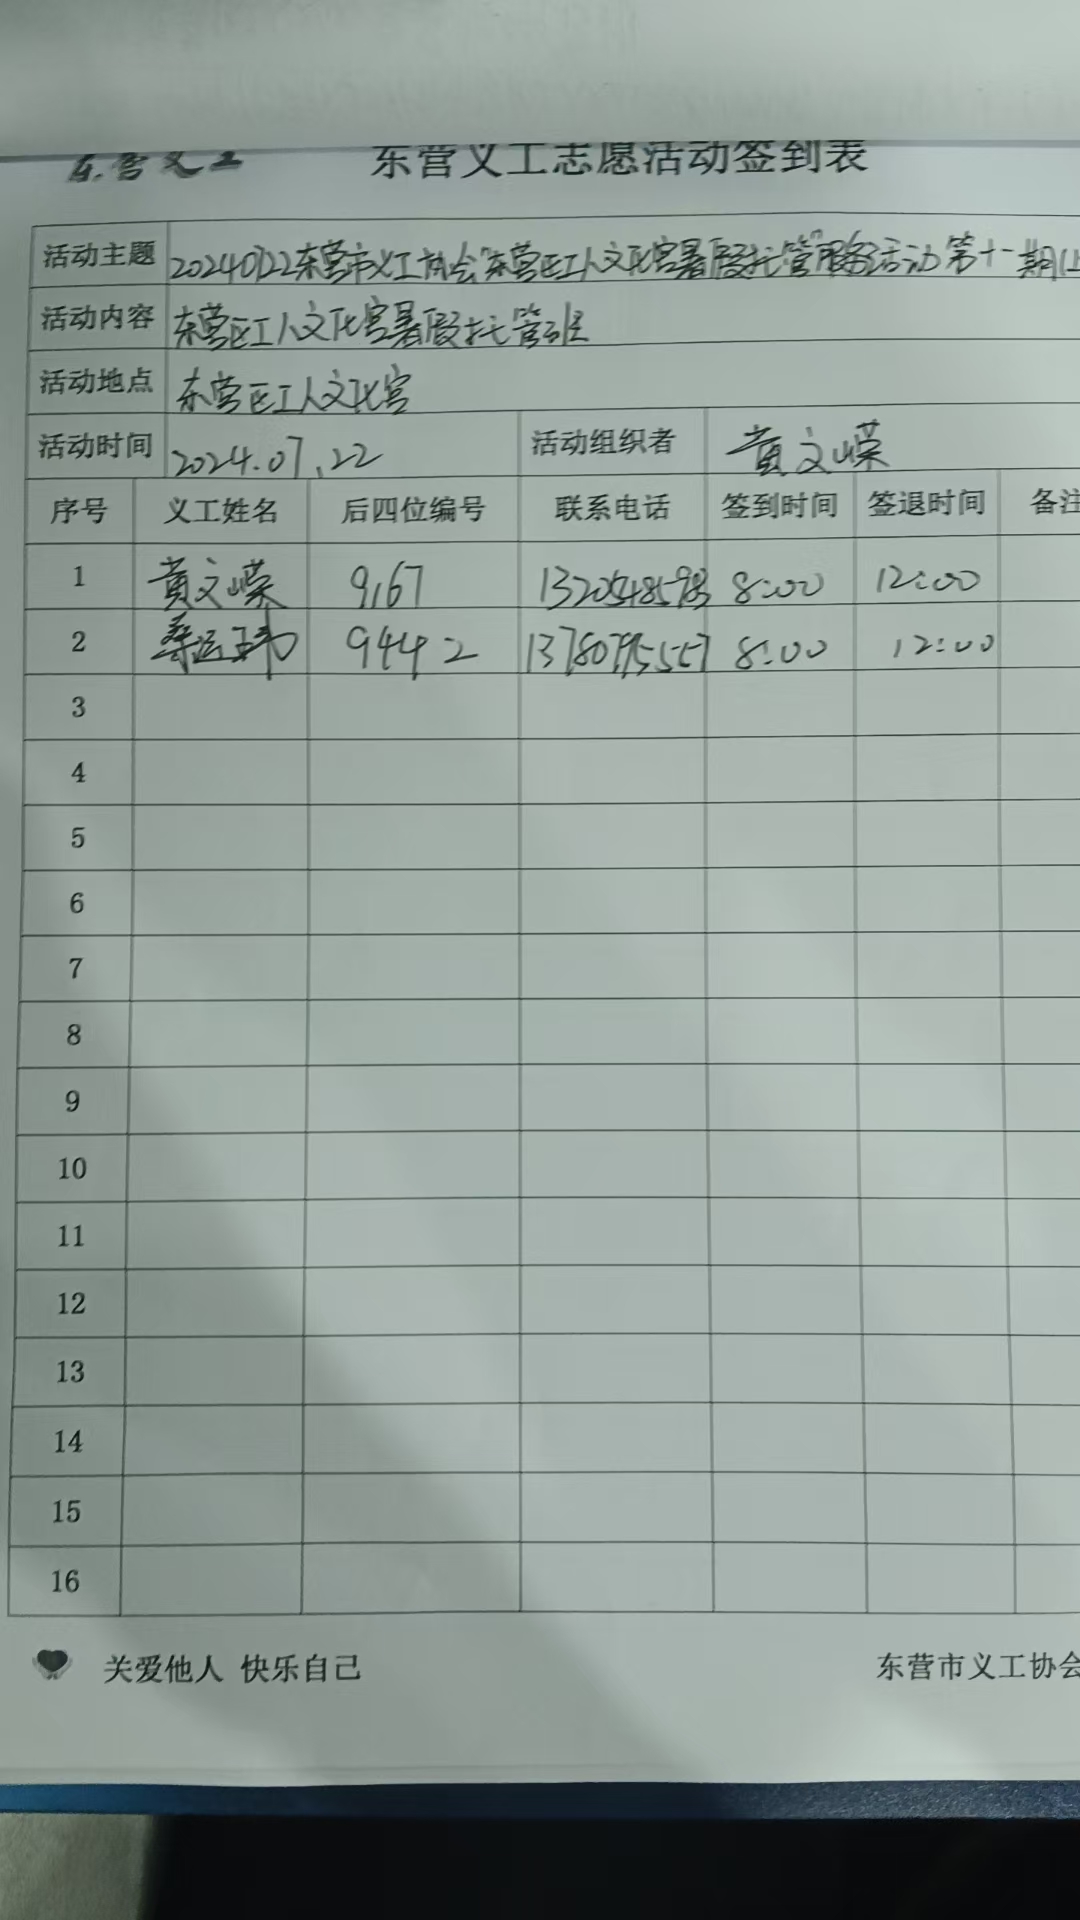 东营义工 东营义工志愿活动签到表
活动主题 20240722东营市义工协会"东营区工人文化宫暑假托管"服务活动第十一期(上
活动内容 东营区工人文化宫暑假托管班
活动地点 东营区工人文化宫
活动时间 2024.07.22 活动组织者 黄文嵘
序号 义工姓名 后四位编号 联系电话 签到时间 签退时间 备注
1 黄文嵘 9167 8:00 12:00
2 9442 8:00 12:00
3
4
5
6
7
8
9
10
11
12
13
14
15
16
关爱他人 快乐自己 东营市义工协会